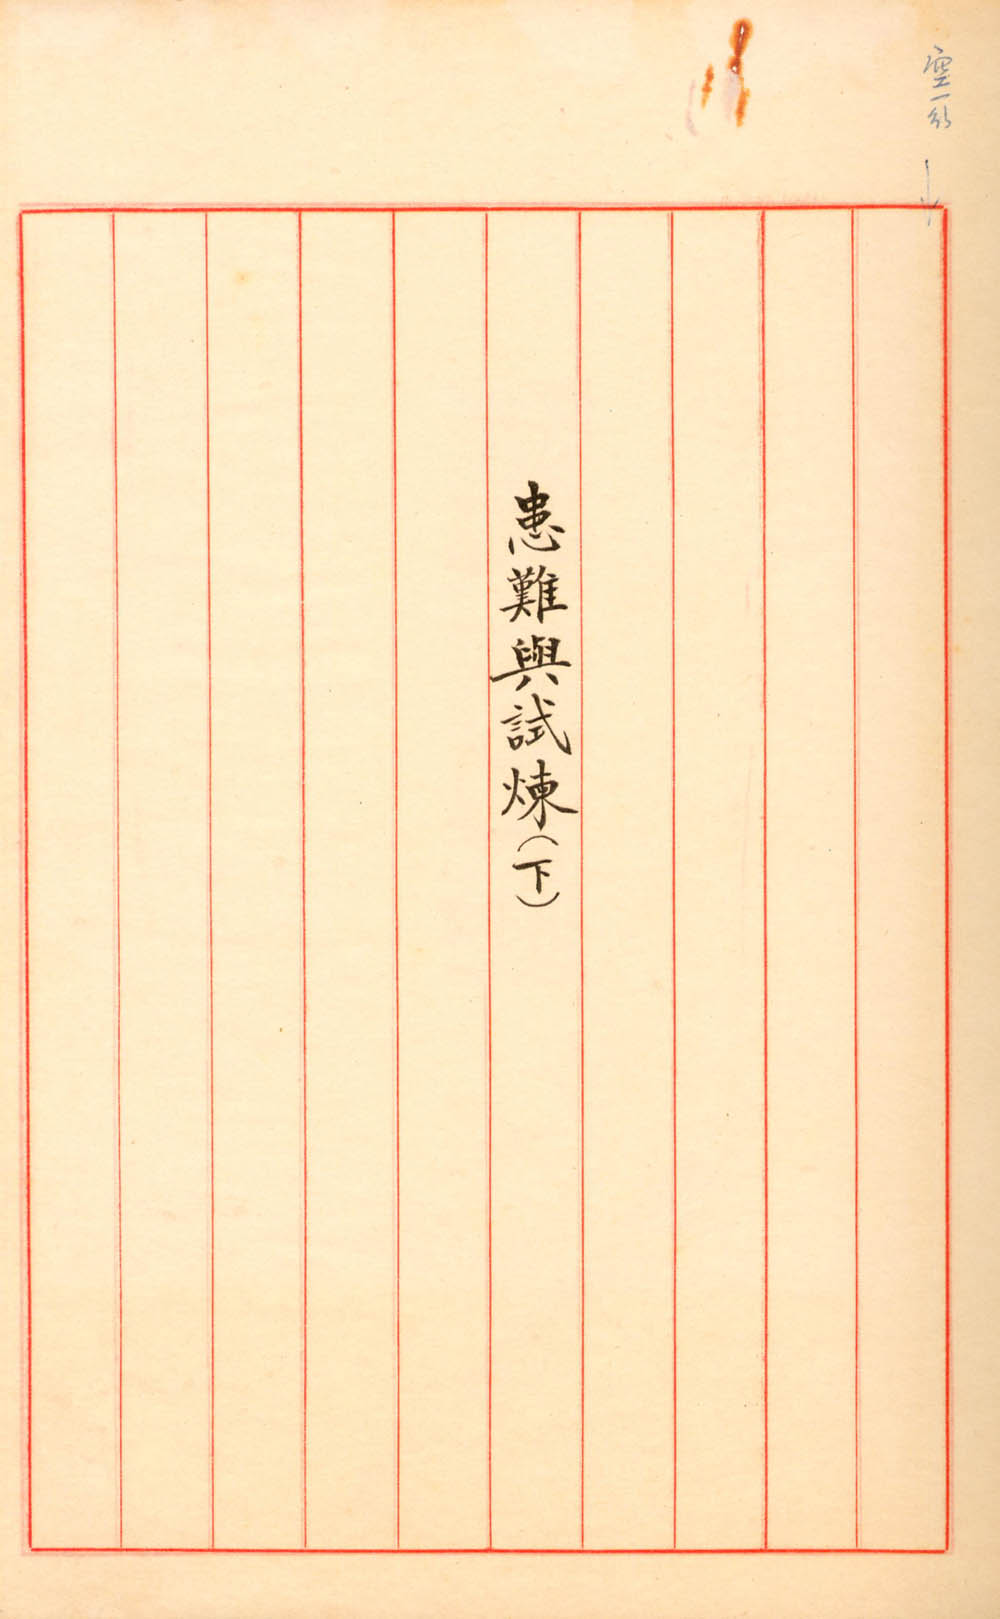 空一行
患難與試煉(下)